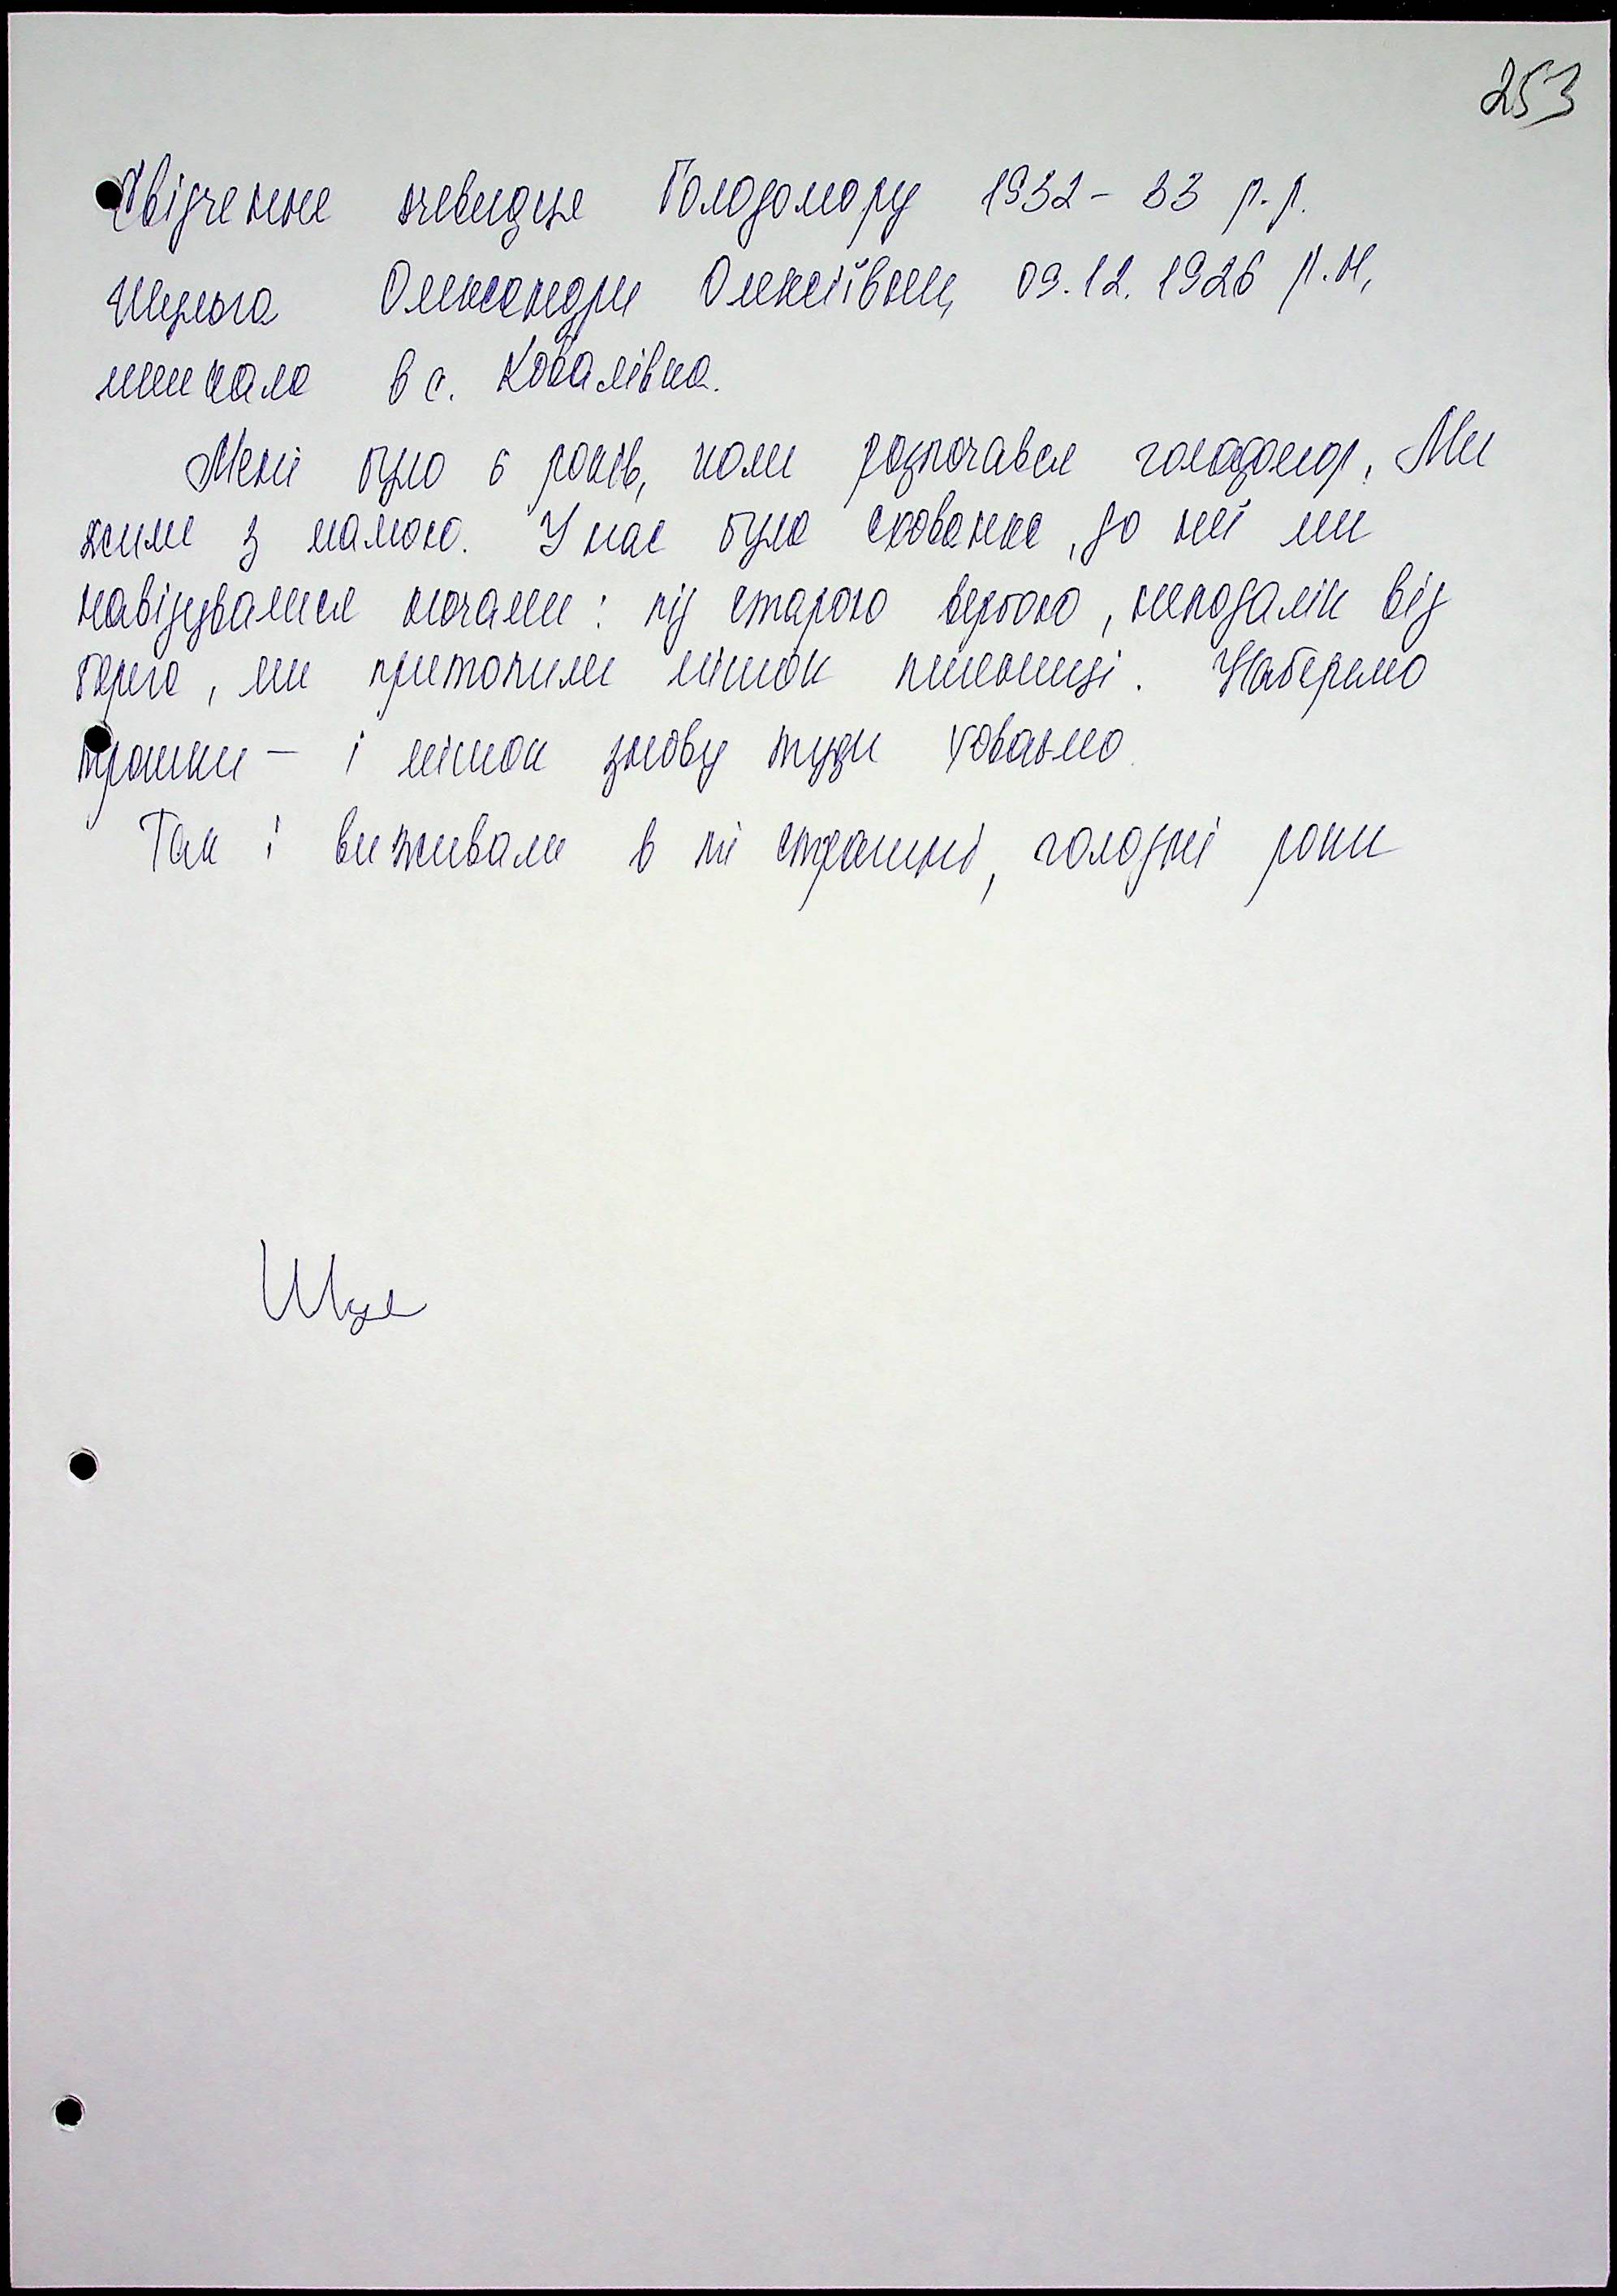 253
Свідчення очевидця Голодомору 1932-33 р.р.
Шульга Олександри Олексіївни, 09.12.1926 р.н,
мешкала в с. Ковалівка.
Мені було 6 років, коли розпочався голодомор. Ми
жили з мамою. У нас була схованка, до неї ми
навідувалися ночами: під старою вербою, неподалік від
берега, ми притопили мішок пшениці. Наберемо
трошки - і мішок знову туди ховаємо.
Так і виживали в ті страшні, голодні роки